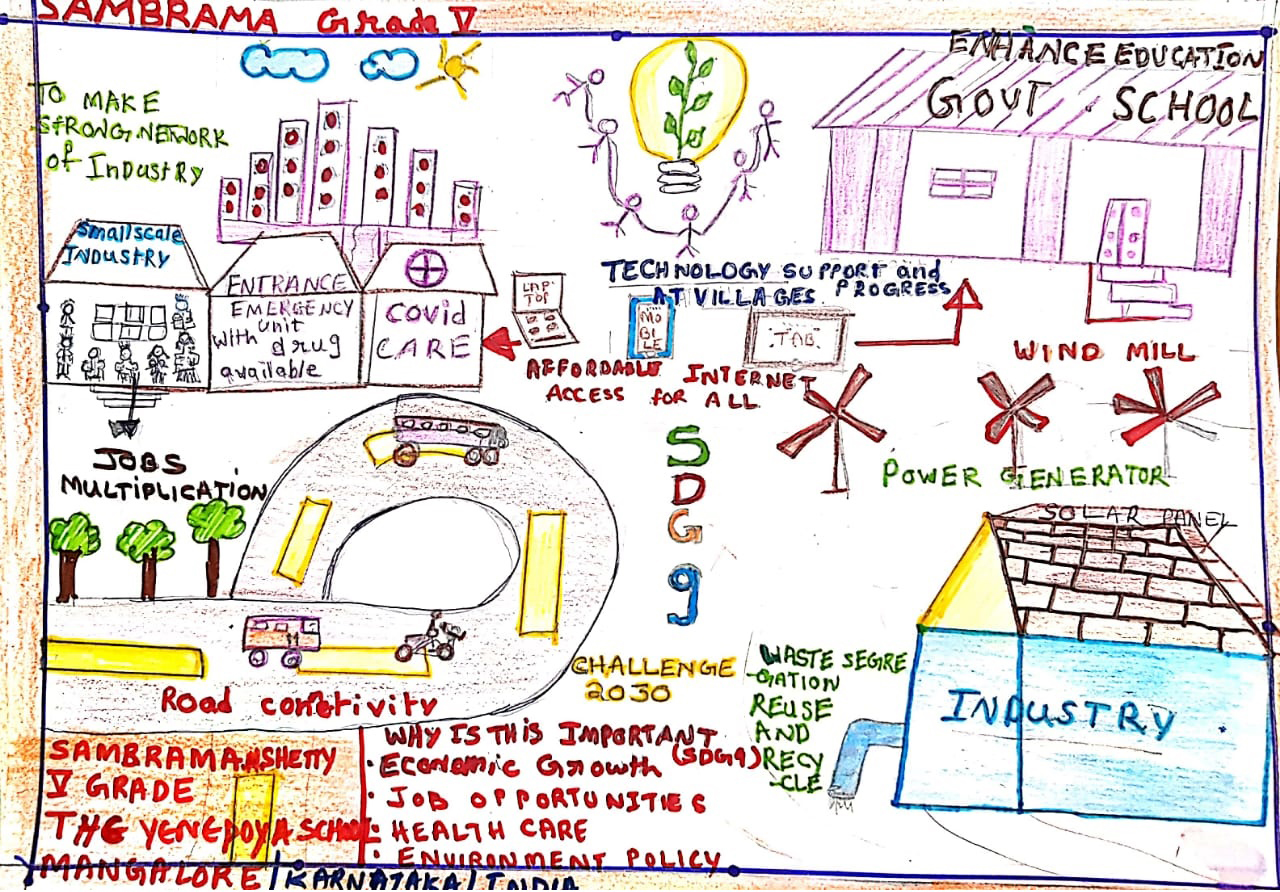 SAMBRAMA Grade V
TO MAKE
STRONG NETWORK
of INDUSTRY
ENHANCE EDUCATION
GOVT. SCHOOL
Smallscale
INDUSTRY
ENTRANCE
EMERGENCY
unit
with drug
available
Covid
CARE
LAP
TOP
TECHNOLOGY SUPPORT and
AT VILLAGES. PROGRESS
MO
BI
LE
TAB.
AFFORDABLE INTERNET
ACCESS for ALL
WIND MILL
POWER GENERATOR
JOBS
MULTIPLICATION
S
D
G
9
SOLAR PANEL
INDUSTRY
CHALLENGE
2030
WASTE SEGRE
-GATION
REUSE
AND
RECY
-CLE
Road conctivity
SAMBRAMA.M.SHETTY
V GRADE
THE YENEPOYA SCHOOL
MANGALORE/KARNATAKA/INDIA
WHY IS THIS IMPORTANT
(SDG9)
· Economic Growth
· JOB OPPORTUNITIES
· HEALTH CARE
· ENVIRONMENT POLICY